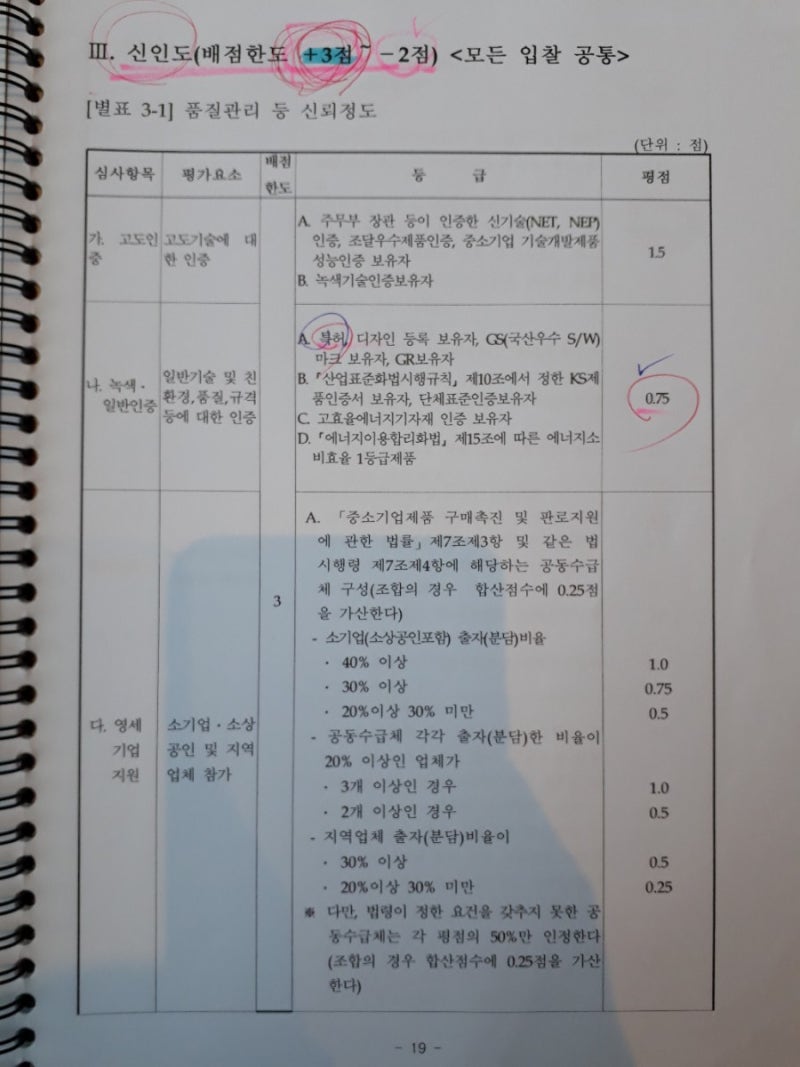 Ⅲ. 신인도(배점한도 +3점~-2점) <모든 입찰 공통>
[별표 3-1] 품질관리 등 신뢰정도
(단위 : 점)
심사항목 평가요소 배점한도 등 급 평점
가. 고도인증
고도기술에 대한 인증
A. 주무부 장관 등이 인증한 신기술(NET, NEP)
인증, 조달우수제품인증, 중소기업 기술개발제품
성능인증 보유자
B. 녹색기술인증보유자
1.5
나. 녹색·
일반인증
일반기술 및 친
환경,품질,규격
등에 대한 인증
A. 특허, 디자인 등록 보유자, GS(국산우수 S/W)
마크 보유자, GR보유자
B. 「산업표준화법시행규칙」 제10조에서 정한 KS제
품인증서 보유자, 단체표준인증보유자
C. 고효율에너지기자재 인증 보유자
D. 「에너지이용합리화법」 제15조에 따른 에너지소
비효율 1등급제품
0.75
3
다. 영세
기업
지원
소기업·소상
공인 및 지역
업체 참가
A. 「중소기업제품 구매촉진 및 판로지원
에 관한 법률」제7조제3항 및 같은 법
시행령 제7조제4항에 해당하는 공동수급
체 구성(조합의 경우 합산점수에 0.25점
을 가산한다)
- 소기업(소상공인포함) 출자(분담)비율
· 40% 이상 1.0
· 30% 이상 0.75
· 20%이상 30% 미만 0.5
- 공동수급체 각각 출자(분담)한 비율이
20% 이상인 업체가
· 3개 이상인 경우 1.0
· 2개 이상인 경우 0.5
- 지역업체 출자(분담)비율이
· 30% 이상 0.5
· 20%이상 30% 미만 0.25
※ 다만, 법령이 정한 요건을 갖추지 못한 공
동수급체는 각 평점의 50%만 인정한다
(조합의 경우 합산점수에 0.25점을 가산
한다)
- 19 -